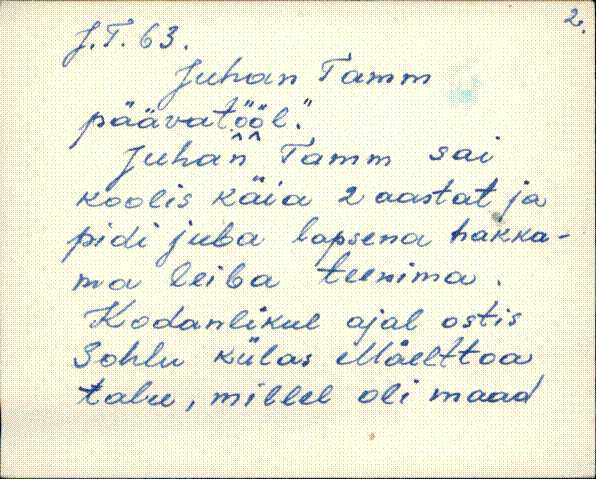 2.
J.T. 63.
Juhan Tamm
päävatööl."
Juhan Tamm sai
koolis käia 2 aastat ja
pidi juba lapsena hakka-
ma leiba teenima.
Kodanlikul ajal ostis
Sohlu külas Mäelttoa
talu, millel oli maad